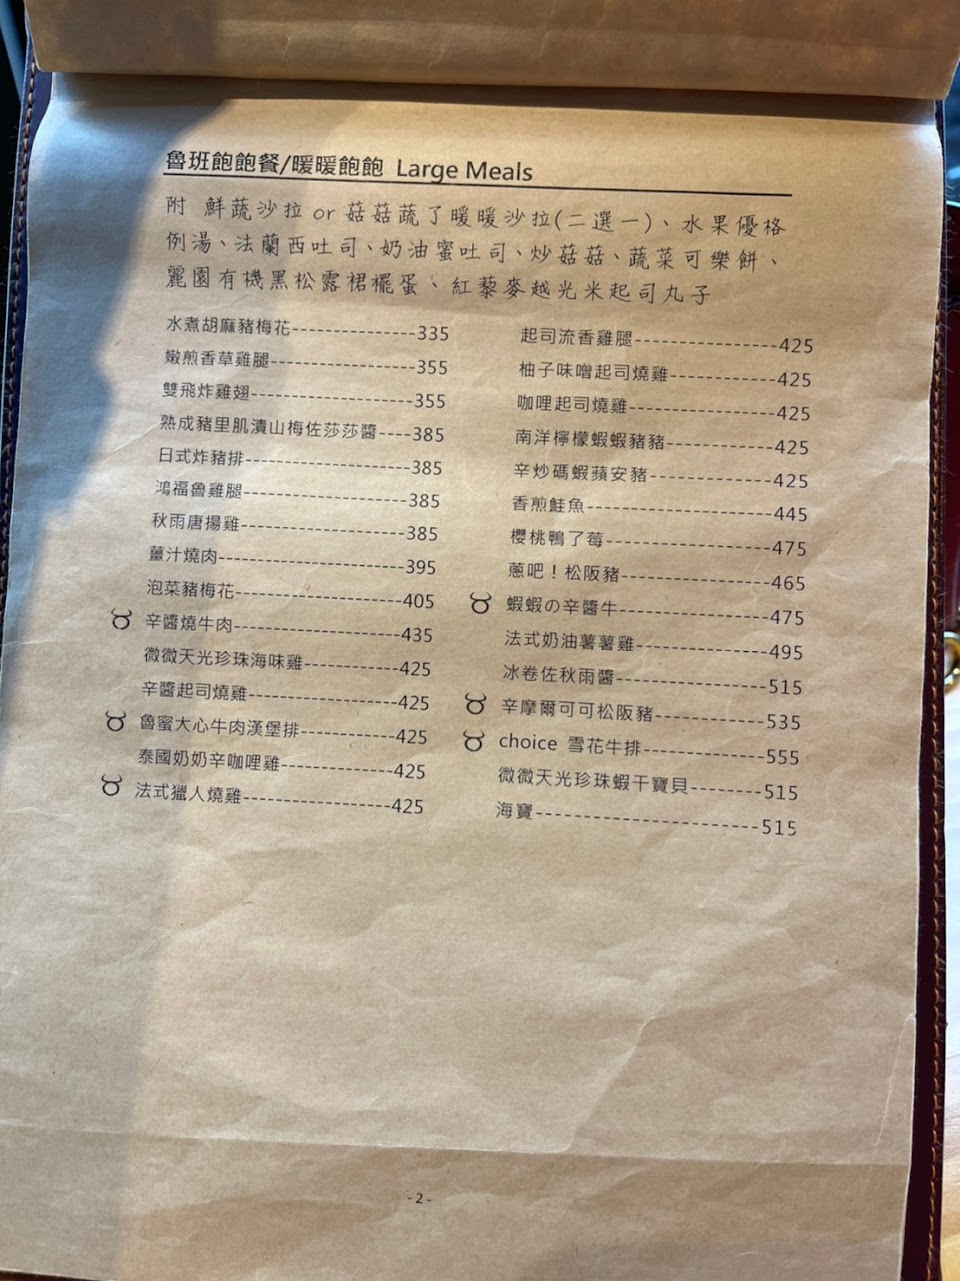 魯班飽飽餐/暖暖飽飽 Large Meals
附 鮮蔬沙拉 or 菇菇蔬了暖暖沙拉(二選一)、水果優格
例湯、法蘭西吐司、奶油蜜吐司、炒菇菇、蔬菜可樂餅、
麗園有機黑松露裙襬蛋、紅藜麥越光米起司丸子
水煮胡麻豬梅花--------------335
嫩煎香草雞腿----------------355
雙飛炸雞翅------------------355
熟成豬里肌漬山梅佐莎莎醬----385
日式炸豬排------------------385
鴻福魯雞腿------------------385
秋雨唐揚雞------------------385
薑汁燒肉--------------------395
泡菜豬梅花------------------405
辛醬燒牛肉------------------435
微微天光珍珠海味雞----------425
辛醬起司燒雞----------------425
魯蜜大心牛肉漢堡排----------425
泰國奶奶辛咖哩雞------------425
法式獵人燒雞----------------425
起司流香雞腿----------------425
柚子味噌起司燒雞------------425
咖哩起司燒雞----------------425
南洋檸檬蝦蝦豬豬------------425
辛炒碼蝦蘋安豬--------------425
香煎鮭魚--------------------445
櫻桃鴨了莓------------------475
蔥吧！松阪豬----------------465
蝦蝦の辛醬牛----------------475
法式奶油薯薯雞--------------495
冰卷佐秋雨醬----------------515
辛摩爾可可松阪豬------------535
choice 雪花牛排-------------555
微微天光珍珠蝦干寶貝--------515
海寶------------------------515
-2-